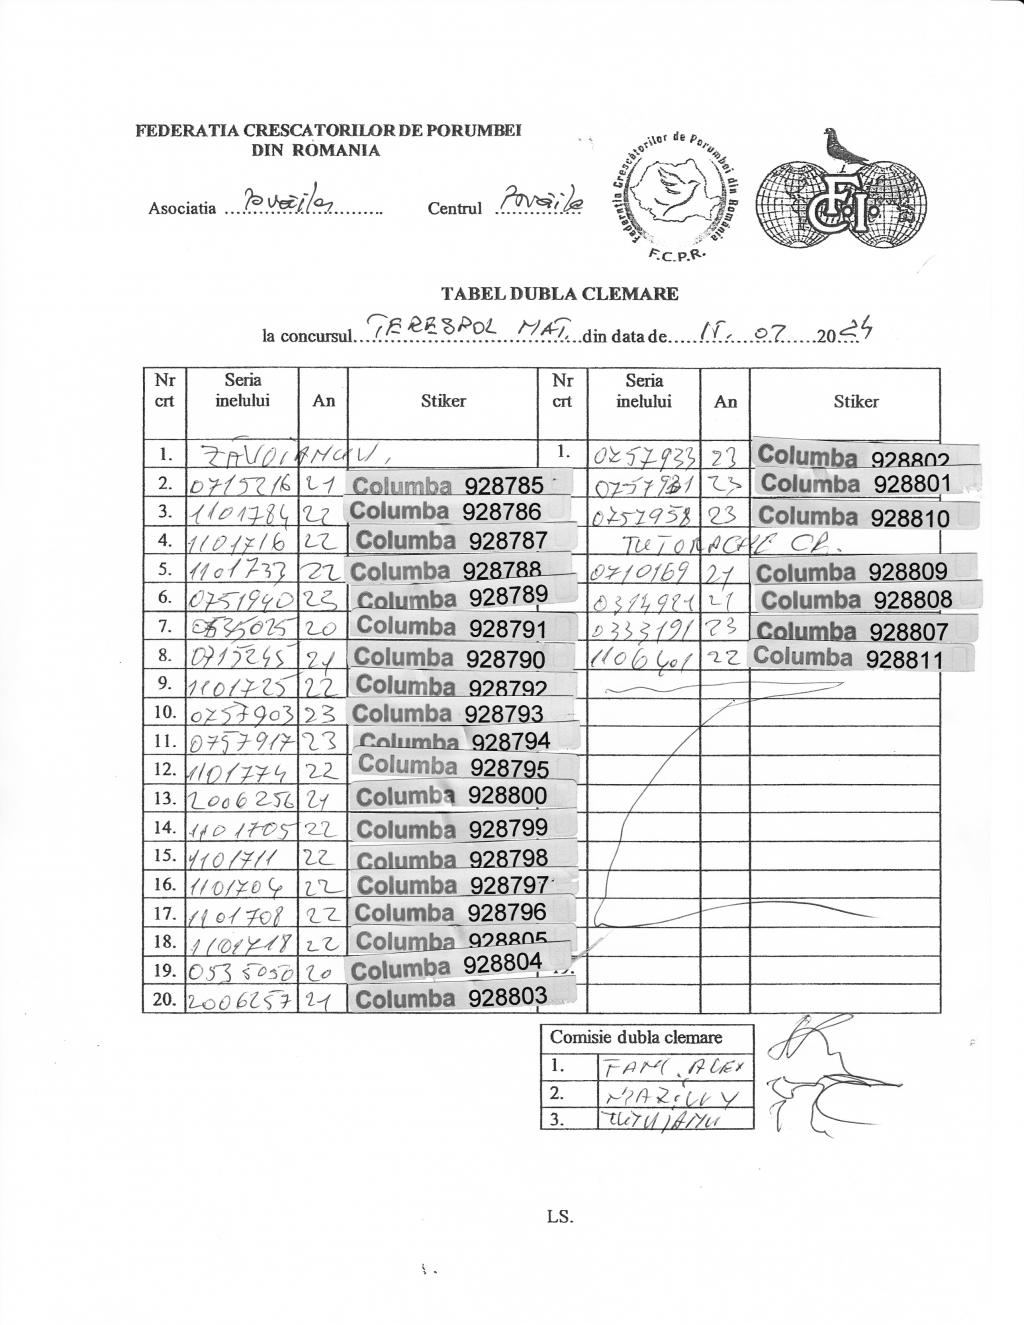 FEDERATIA CRESCATORILOR DE PORUMBEI
DIN ROMANIA
Federatia Crescătorilor de Porumbei din România
F.C.P.R.
F.C.I.
Asociatia
Centrul
TABEL DUBLA CLEMARE
la concursul TERESPOL MAT. din data de 07 2024
Nr crt Seria inelului An Stiker Nr crt Seria inelului An Stiker
1. ZĂVOIANU 1. 0757933 23 Columba 928802
2. 0715216 21 Columba 928785 0757931 23 Columba 928801
3. 1101784 22 Columba 928786 0757958 23 Columba 928810
4. 1101716 22 Columba 928787 TUTORACHE
5. 1101733 22 Columba 928788 0710169 21 Columba 928809
6. 0751940 23 Columba 928789 0314921 21 Columba 928808
7. 0535025 20 Columba 928791 0333191 23 Columba 928807
8. 0715245 21 Columba 928790 1106401 22 Columba 928811
9. 1101725 22 Columba 928792
10. 0757903 23 Columba 928793
11. 0757917 23 Columba 928794
12. 1101774 22 Columba 928795
13. 2006256 21 Columba 928800
14. 1101705 22 Columba 928799
15. 1101711 22 Columba 928798
16. 1101704 22 Columba 928797
17. 1101708 22 Columba 928796
18. 1101718 22 Columba 928805
19. 0535050 20 Columba 928804
20. 2006257 21 Columba 928803
Comisie dubla clemare
1. ALEX
2.
3.
LS.